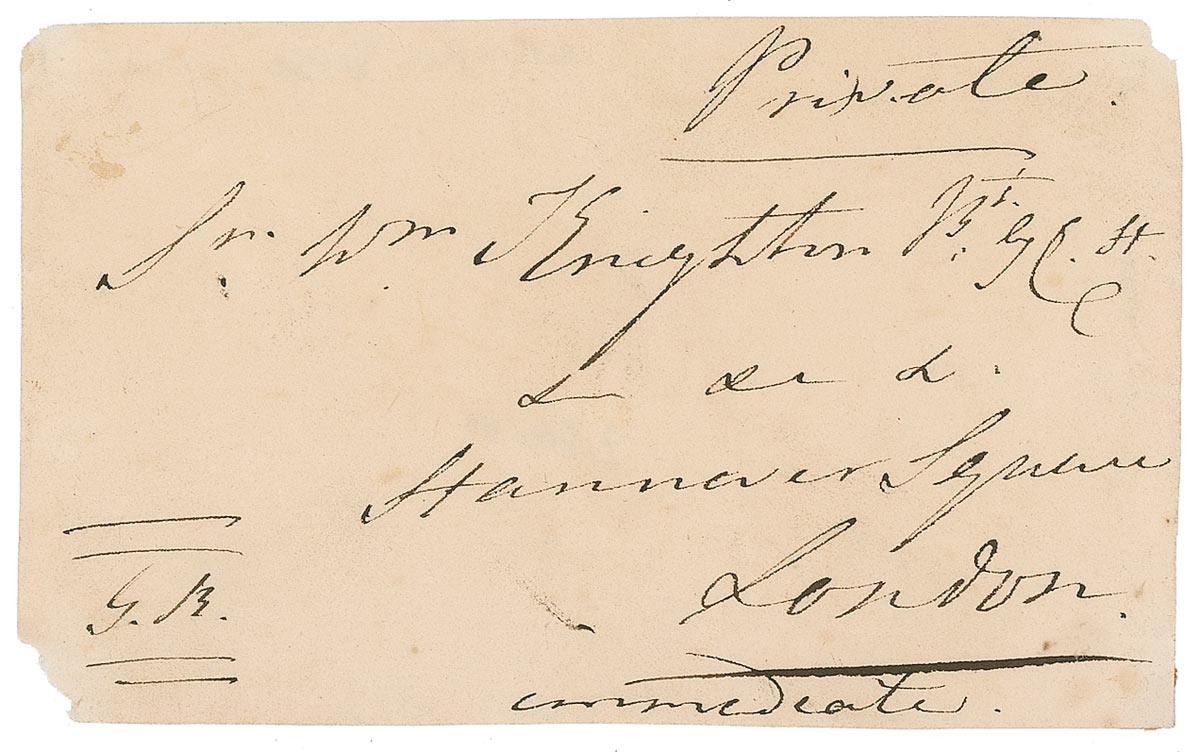 Private.
Sr. Wm. Knighton Bt. G. C. H.
&c &c &c.
Hannover Square
London.
G. R.
immediate.